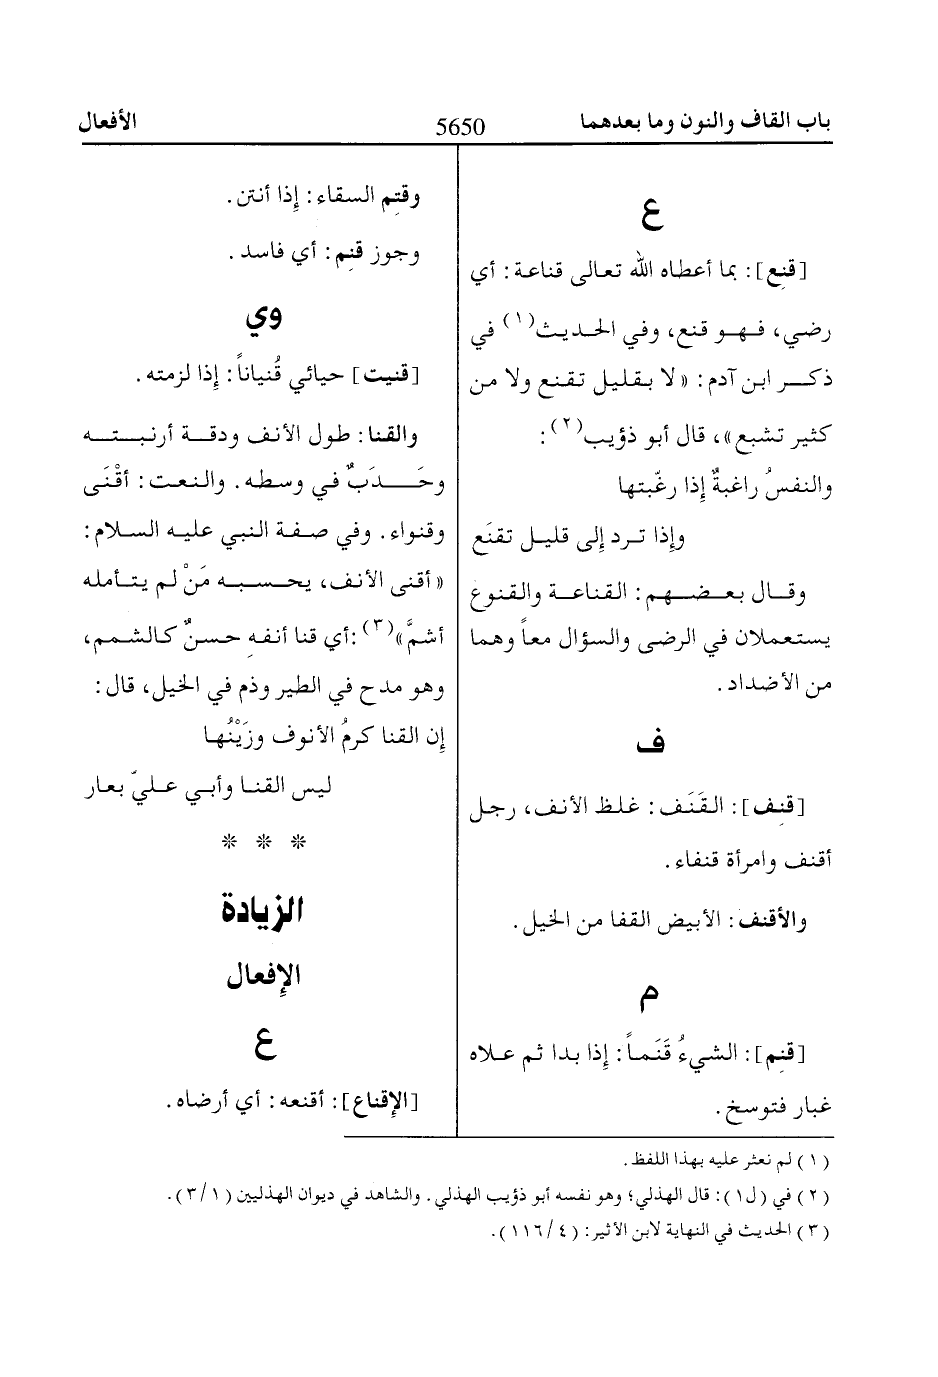 باب القاف والنون وما بعدهما 5650 الأفعال
ع
[قنِع]: بما أعطاه الله تعالى قناعة: أي
رضي، فهو قنع، وفي الحديث(١) في
ذكر ابن آدم: «لا بقليل تقنع ولا من
كثير تشبع»، قال أبو ذؤيب(٢):
والنفسُ راغبةٌ إذا رغّبتها
وإذا ترد إلى قليل تقنَع
وقال بعضهم: القناعة والقنوع
يستعملان في الرضى والسؤال معاً وهما
من الأضداد.
ف
[قنِف]: القَنَف: غلظ الأنف، رجل
أقنف وامرأة قنفاء.
والأقنف: الأبيض القفا من الخيل.
م
[قنِم]: الشيءُ قَنَماً: إذا بدا ثم علاه
غبار فتوسخ.
وقنِم السقاء: إذا أنتن.
وجوز قنِم: أي فاسد.
وي
[قنيت] حيائي قُنياناً: إذا لزمته.
والقنا: طول الأنف ودقة أرنبته
وحَدَبٌ في وسطه. والنعت: أقْنَى
وقنواء. وفي صفة النبي عليه السلام:
«أقنى الأنف، يحسبه مَنْ لم يتأمله
أشمَّ»(٣): أي قنا أنفِه حسنٌ كالشمم،
وهو مدح في الطير وذم في الخيل، قال:
إن القنا كرمُ الأنوف وزَيْنُها
ليس القنا وأبي عليّ بعار
* * *
الزيادة
الإفعال
ع
[الإقناع]: أقنعه: أي أرضاه.
(١) لم نعثر عليه بهذا اللفظ.
(٢) في (ل١): قال الهذلي؛ وهو نفسه أبو ذؤيب الهذلي. والشاهد في ديوان الهذليين (٣/١).
(٣) الحديث في النهاية لابن الأثير: (١١٦/٤).